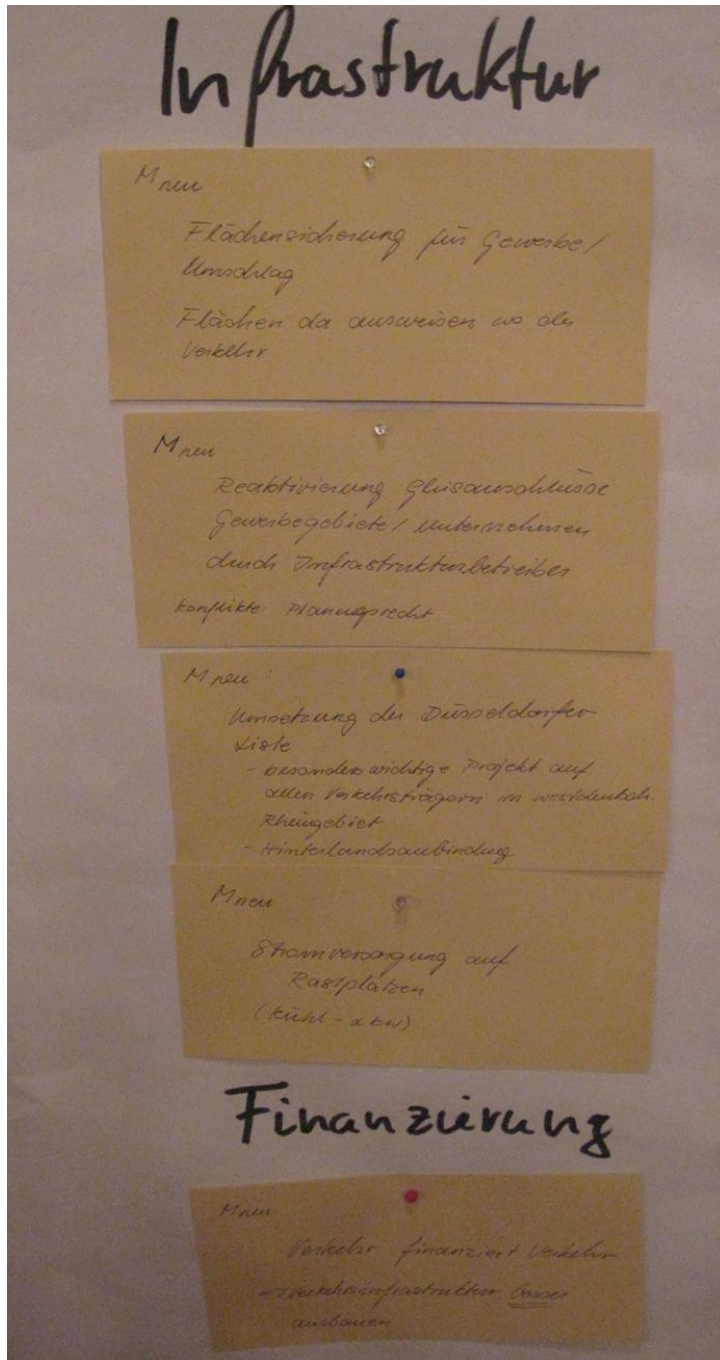 Infrastruktur
M neu
Flächensicherung für Gewerbe/
Umschlag
Flächen da ausweisen wo der
Verkehr
M neu
Reaktivierung Gleisanschlüsse
Gewerbegebiete/Unternehmen
durch Infrastrukturbetreiber
Konflikte: Planungsrecht
M neu:
Umsetzung der Düsseldorfer
Liste
- besonders wichtige Projekt auf
allen Verkehrsträgern im westdeutsch.
Rheingebiet
- Hinterlandsanbindung
M neu
Stromversorgung auf
Rastplätzen
(Kühl-LKW)
Finanzierung
M neu
Verkehr finanziert Verkehr
→ Verkehrsinfrastruktur besser
ausbauen